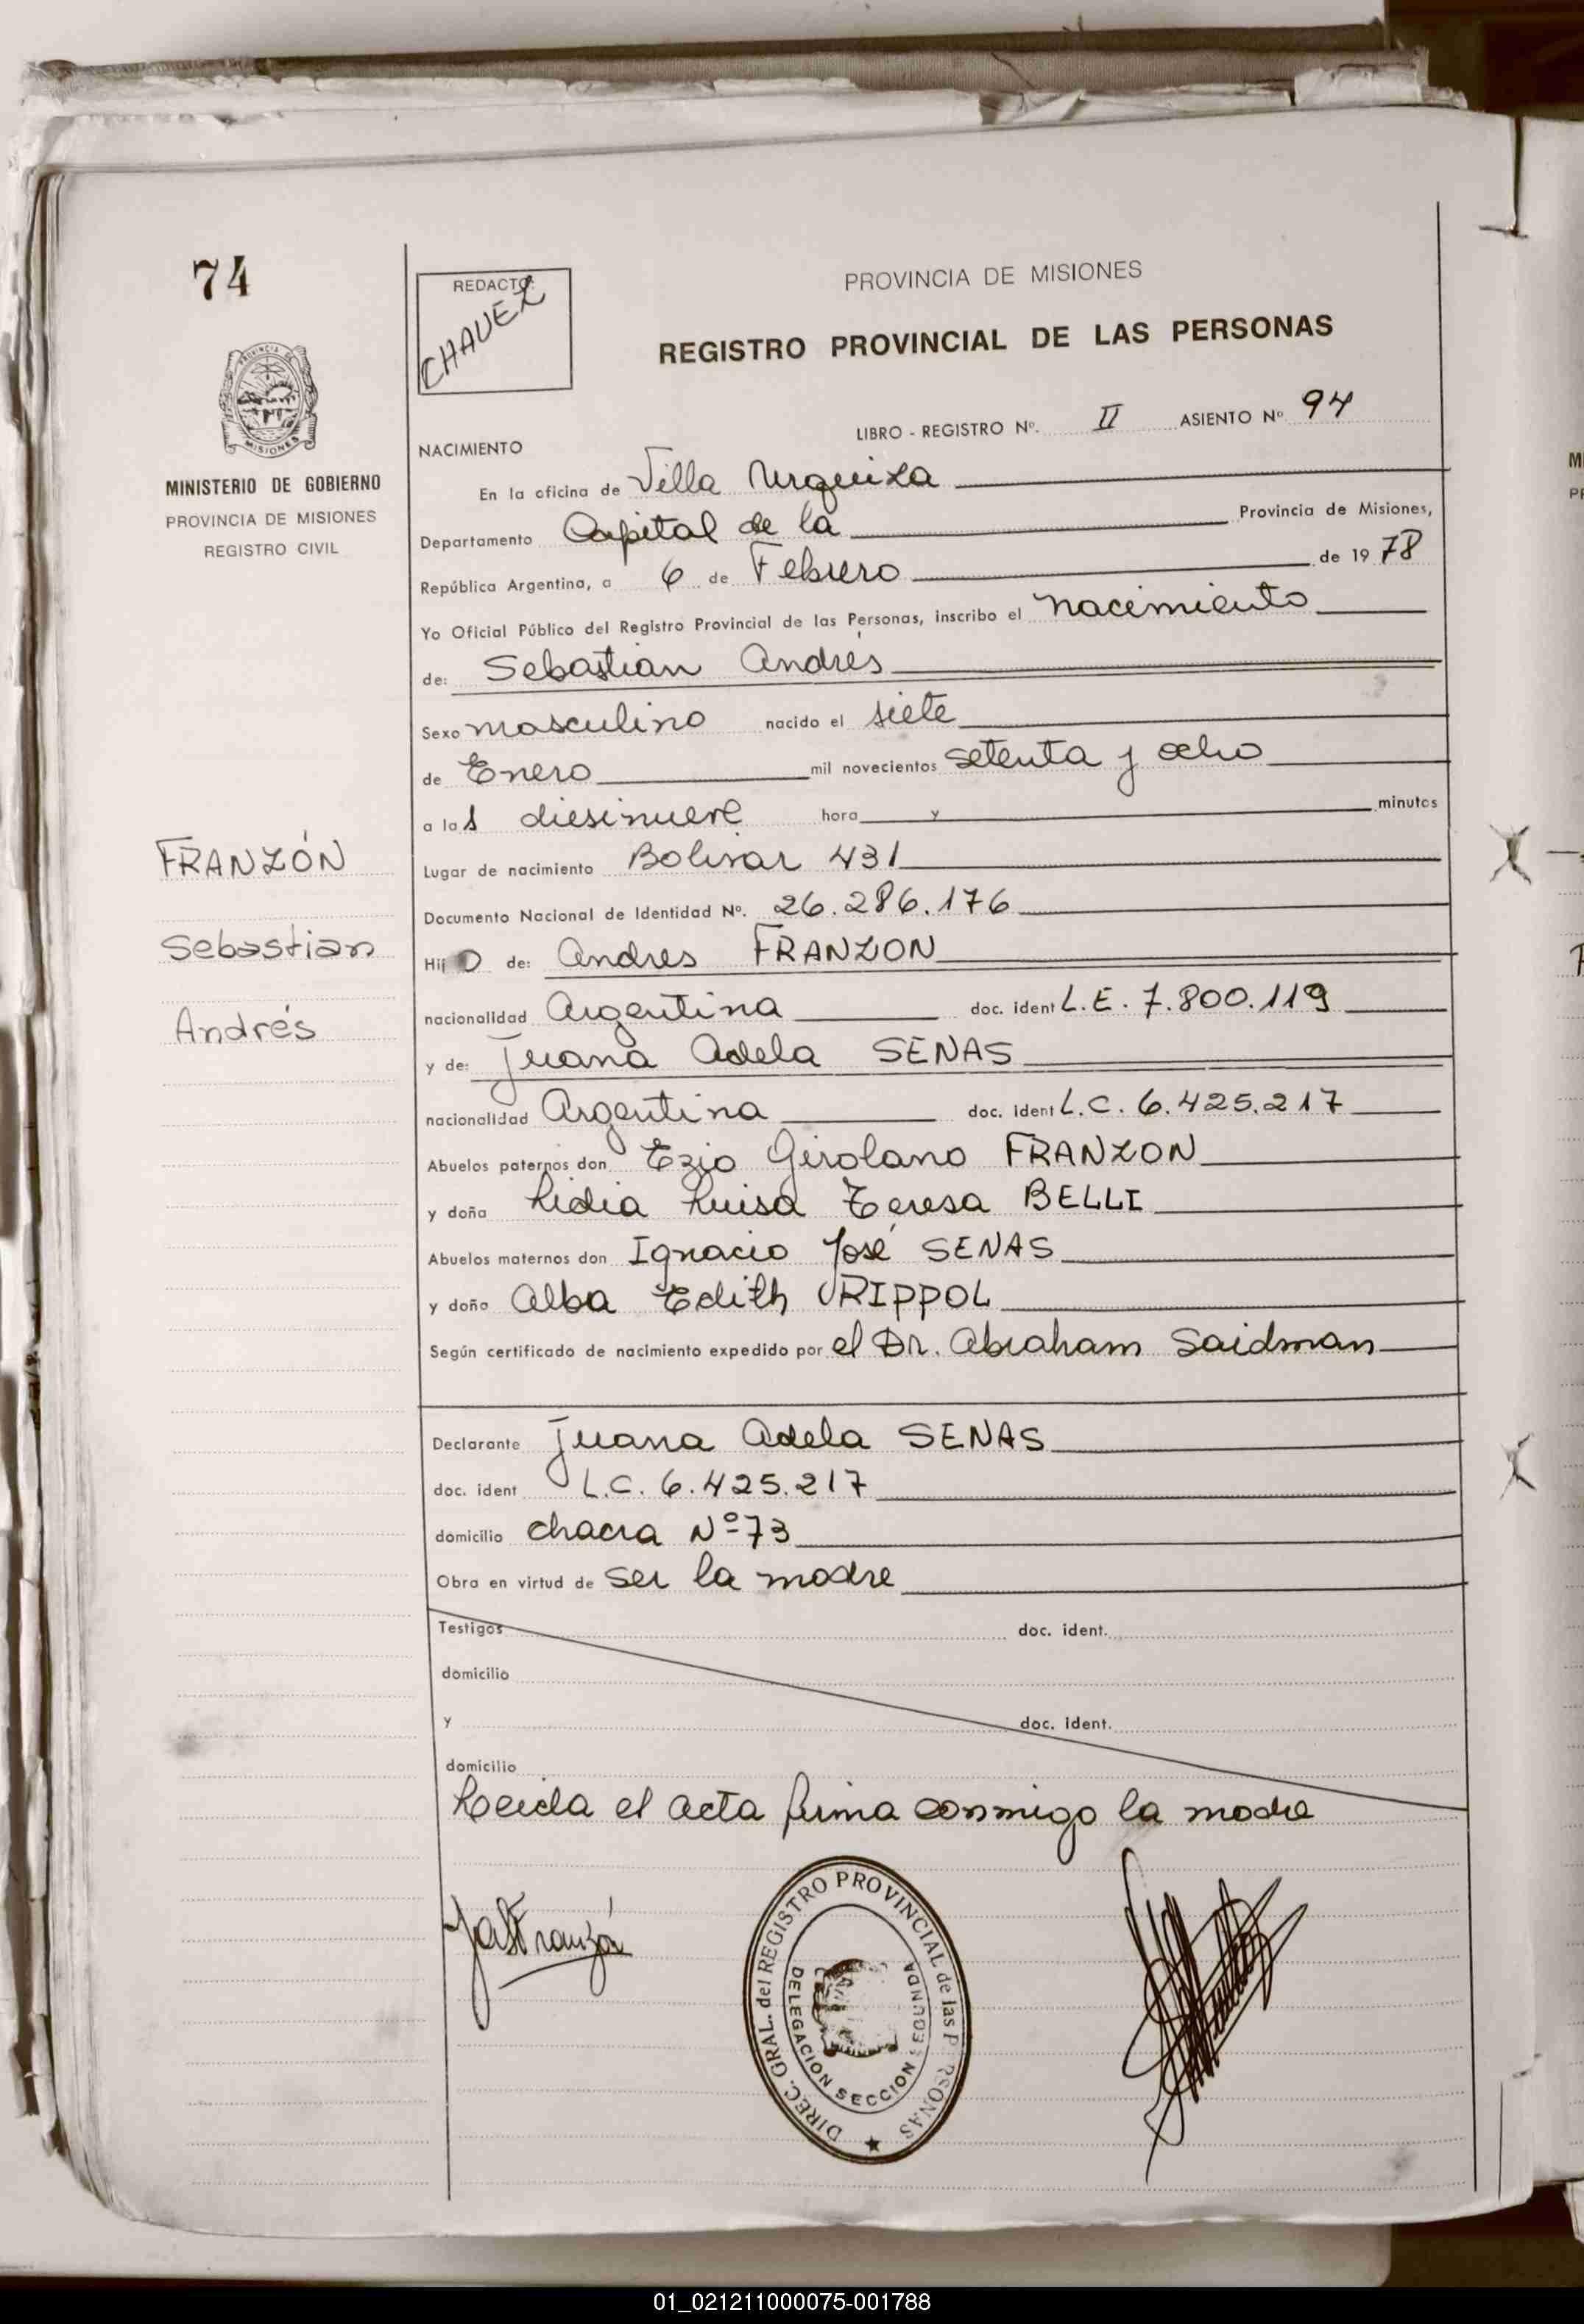 74
REDACTO:
CHAVEZ
PROVINCIA DE MISIONES
REGISTRO PROVINCIAL DE LAS PERSONAS
PROVINCIA DE
MISIONES
MINISTERIO DE GOBIERNO
PROVINCIA DE MISIONES
REGISTRO CIVIL
LIBRO - REGISTRO Nº. II ASIENTO Nº 94
NACIMIENTO
En la oficina de Villa Urquiza
Departamento Capital de la Provincia de Misiones,
República Argentina, a 6 de Febrero de 1978
Yo Oficial Público del Registro Provincial de las Personas, inscribo el nacimiento
de: Sebastian Andrés
Sexo masculino nacido el siete
de Enero mil novecientos setenta y ocho
a las diesinueve hora y minutos
FRANZÓN
Lugar de nacimiento Bolivar 431
Documento Nacional de Identidad Nº. 26.286.176
Sebastian
Hijo de: Andres FRANZON
nacionalidad Argentina doc. ident L.E. 7.800.119
Andrés
y de: Juana Adela SENAS
nacionalidad Argentina doc. ident L.C. 6.425.217
Abuelos paternos don Ezio Girolano FRANZON
y doña Lidia Luisa Teresa BELLI
Abuelos maternos don Ignacio José SENAS
y doña Alba Edith RIPPOL
Según certificado de nacimiento expedido por el Dr. Abraham Saidman
Declarante Juana Adela SENAS
doc. ident L.C. 6.425.217
domicilio chacra Nº 73
Obra en virtud de ser la madre
Testigos doc. ident.
domicilio
y doc. ident.
domicilio
Leida el acta firma conmigo la madre
JASFranzón
DIREC. GRAL. del REGISTRO PROVINCIAL de las PERSONAS
DELEGACION SECCION SEGUNDA
01_021211000075-001788